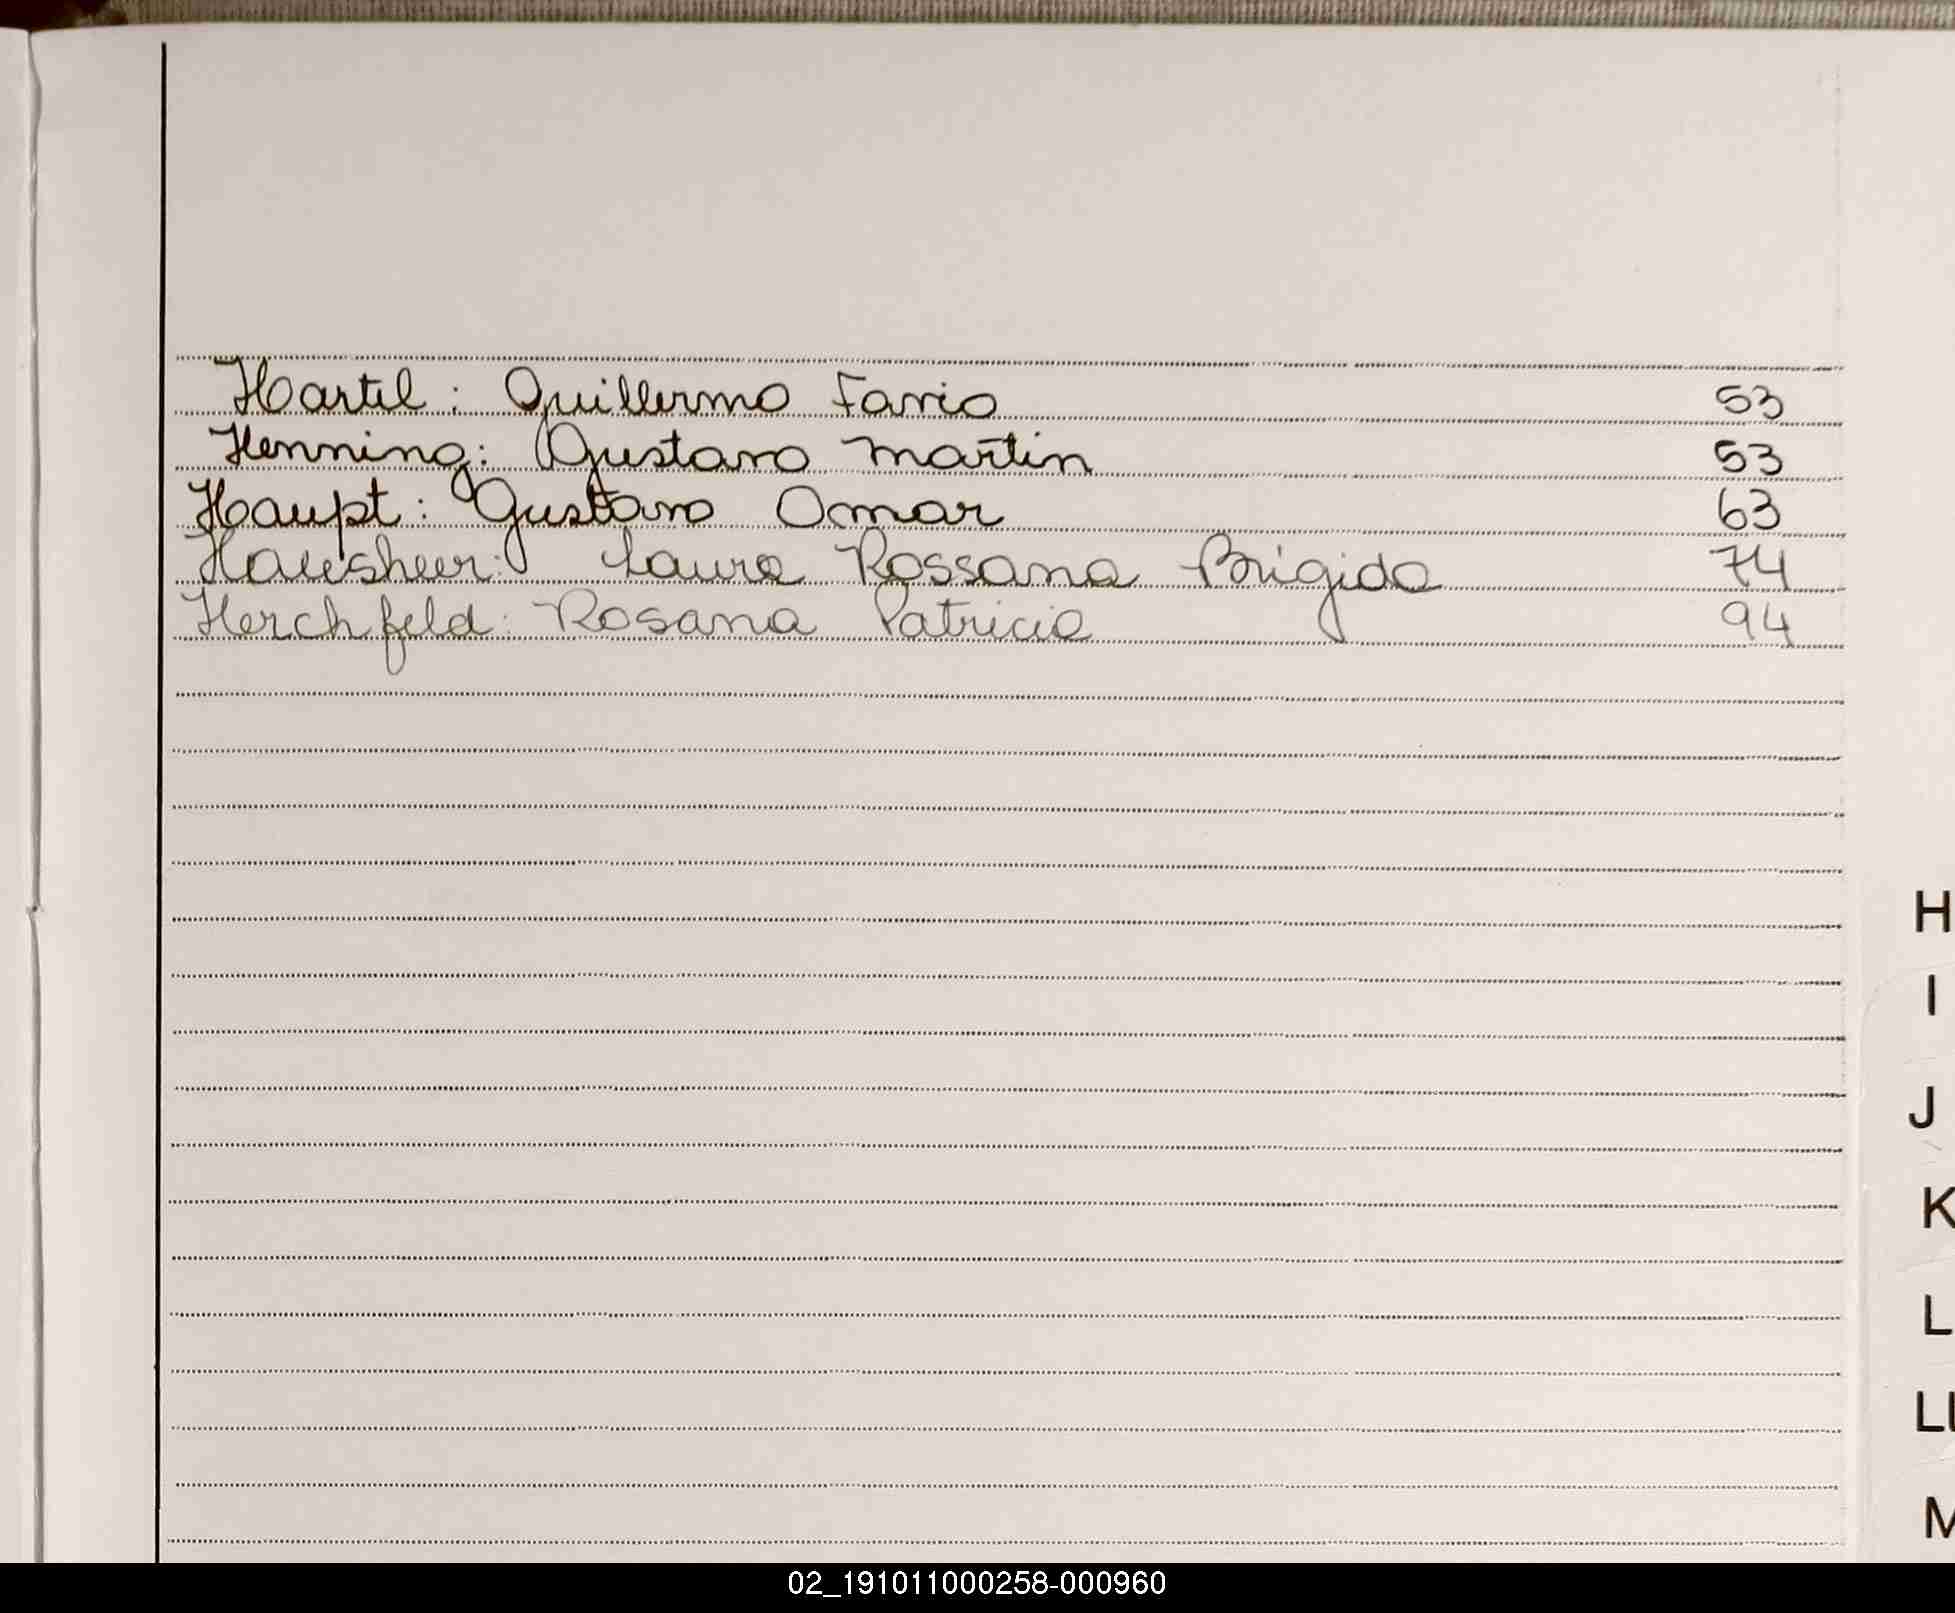 Hartel: Guillermo Favio 53
Henning: Gustavo Martin 53
Haupt: Gustavo Omar 63
Hausheer: Laura Rossana Brigida 74
Herchfeld: Rosana Patricia 94
H
I
J
K
L
LL
M
02_191011000258-000960